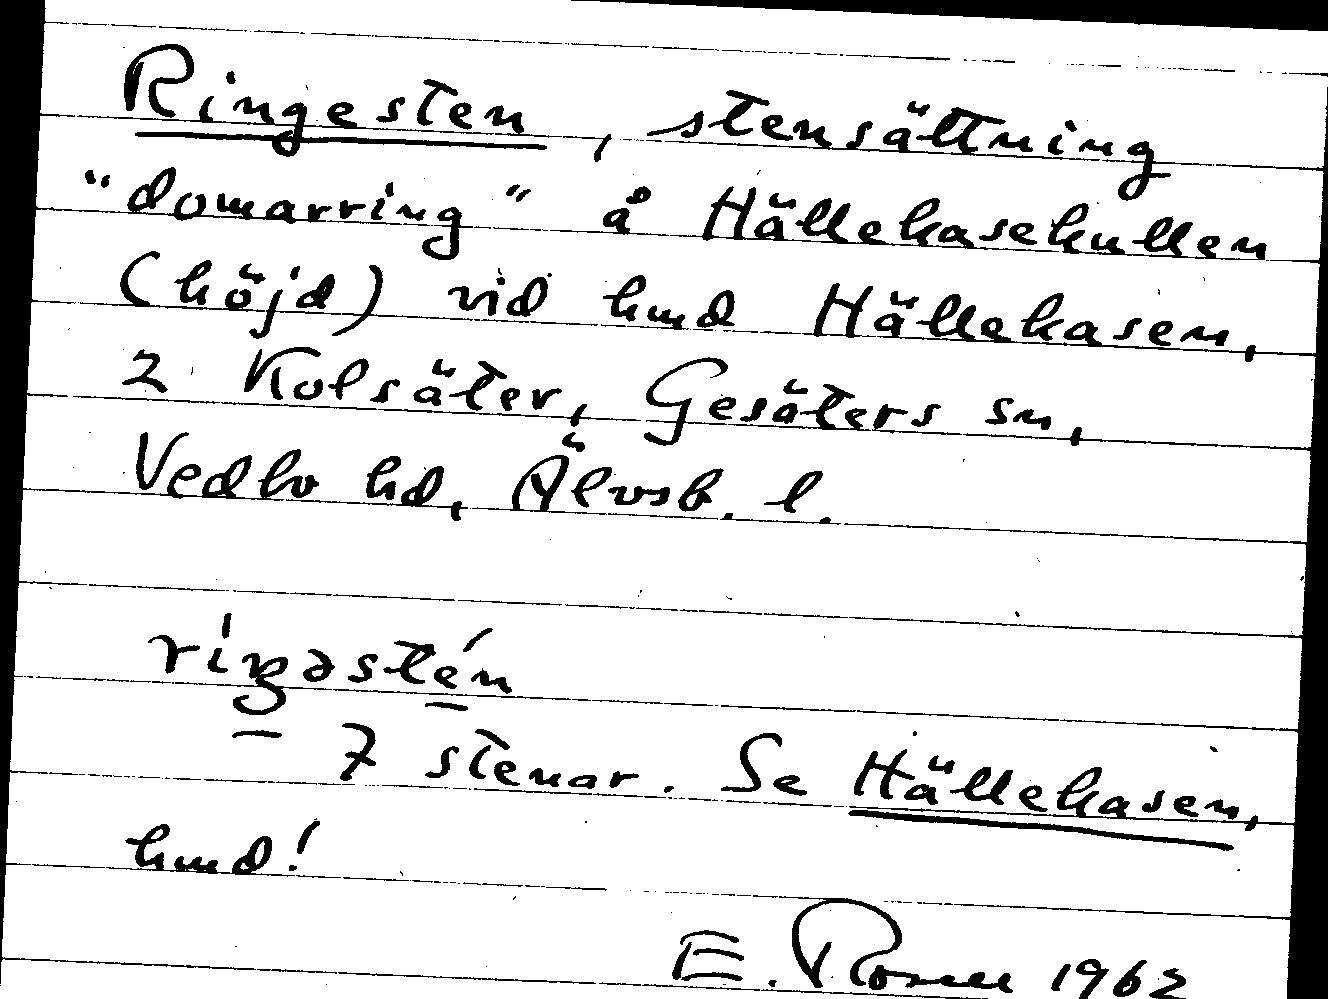 Ringesten, stensättning
"domarring" å Hällekasekullen
(höjd) vid hmd Hällekasen,
2 Kolsäter, Gesäters sn,
Vedbo hd, Älvsb. l.
riŋəstén
7 stenar. Se Hällekasen,
hmd!
E. 1962